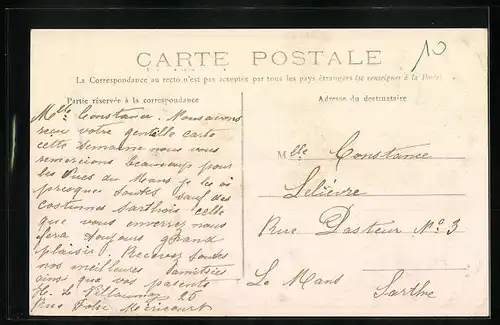 10
CARTE POSTALE
La Correspondance au recto n'est pas acceptée par tous les pays étrangers (se renseigner à la Poste)
Partie réservée à la correspondance
Adresse du destinataire
Melle Constance. Nous avons
reçu votre gentille carte
cette semaine nous vous
remercions beaucoup pour
les Vues du Mans je les ai
presque toutes sauf des
costumes Sarthois celle
que vous enverrez nous
fera toujours grand
plaisir. Recevez toutes
nos meilleures amitiées
ainsi que vos parents
H. Le 20
Rue Méricourt
Melle Constance
Lelièvre
Rue Pasteur No 3
Le Mans
Sarthe